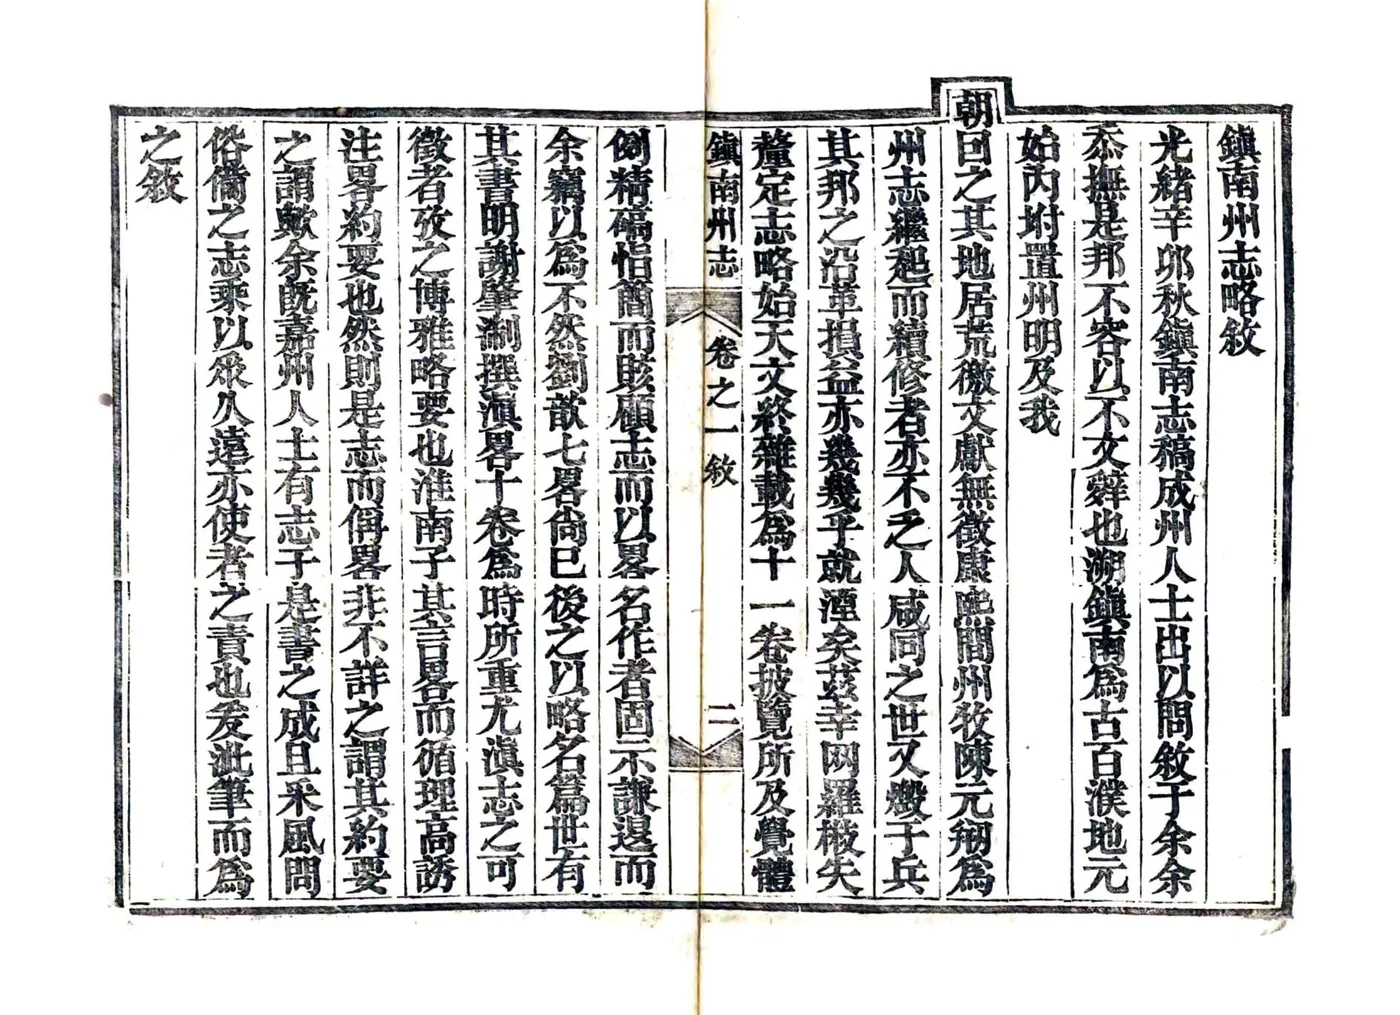 鎮南州志略敘
光緒辛卯秋鎮南志稿成州人士出以問敘于余余
忝撫是邦不容以不文辭也溯鎮南為古百濮地元
始內坿置州明及我
朝因之其地居荒徼文獻無徵康熙間州牧陳元朔為
州志繼起而續修者亦不乏人咸同之世又燬于兵
其邦之沿革損益亦幾幾乎就湮矣茲幸网羅散失
釐定志略始天文終雜載為十一卷披覽所及覺體
鎮南州志
卷之一敘
二
例精碻恉簡而賅顧志而以畧名作者固示謙退而
余竊以為不然劉歆七畧尚已後之以略名篇世有
其書明謝肇淛撰滇畧十卷為時所重尤滇志之可
徵者攷之博雅略要也淮南子其言畧而循理高誘
注畧約要也然則是志而偁畧非不詳之謂其約要
之謂歟余旣嘉州人士有志于是書之成且采風問
俗備之志乘以垂久遠亦使者之責也爰泚筆而為
之敘